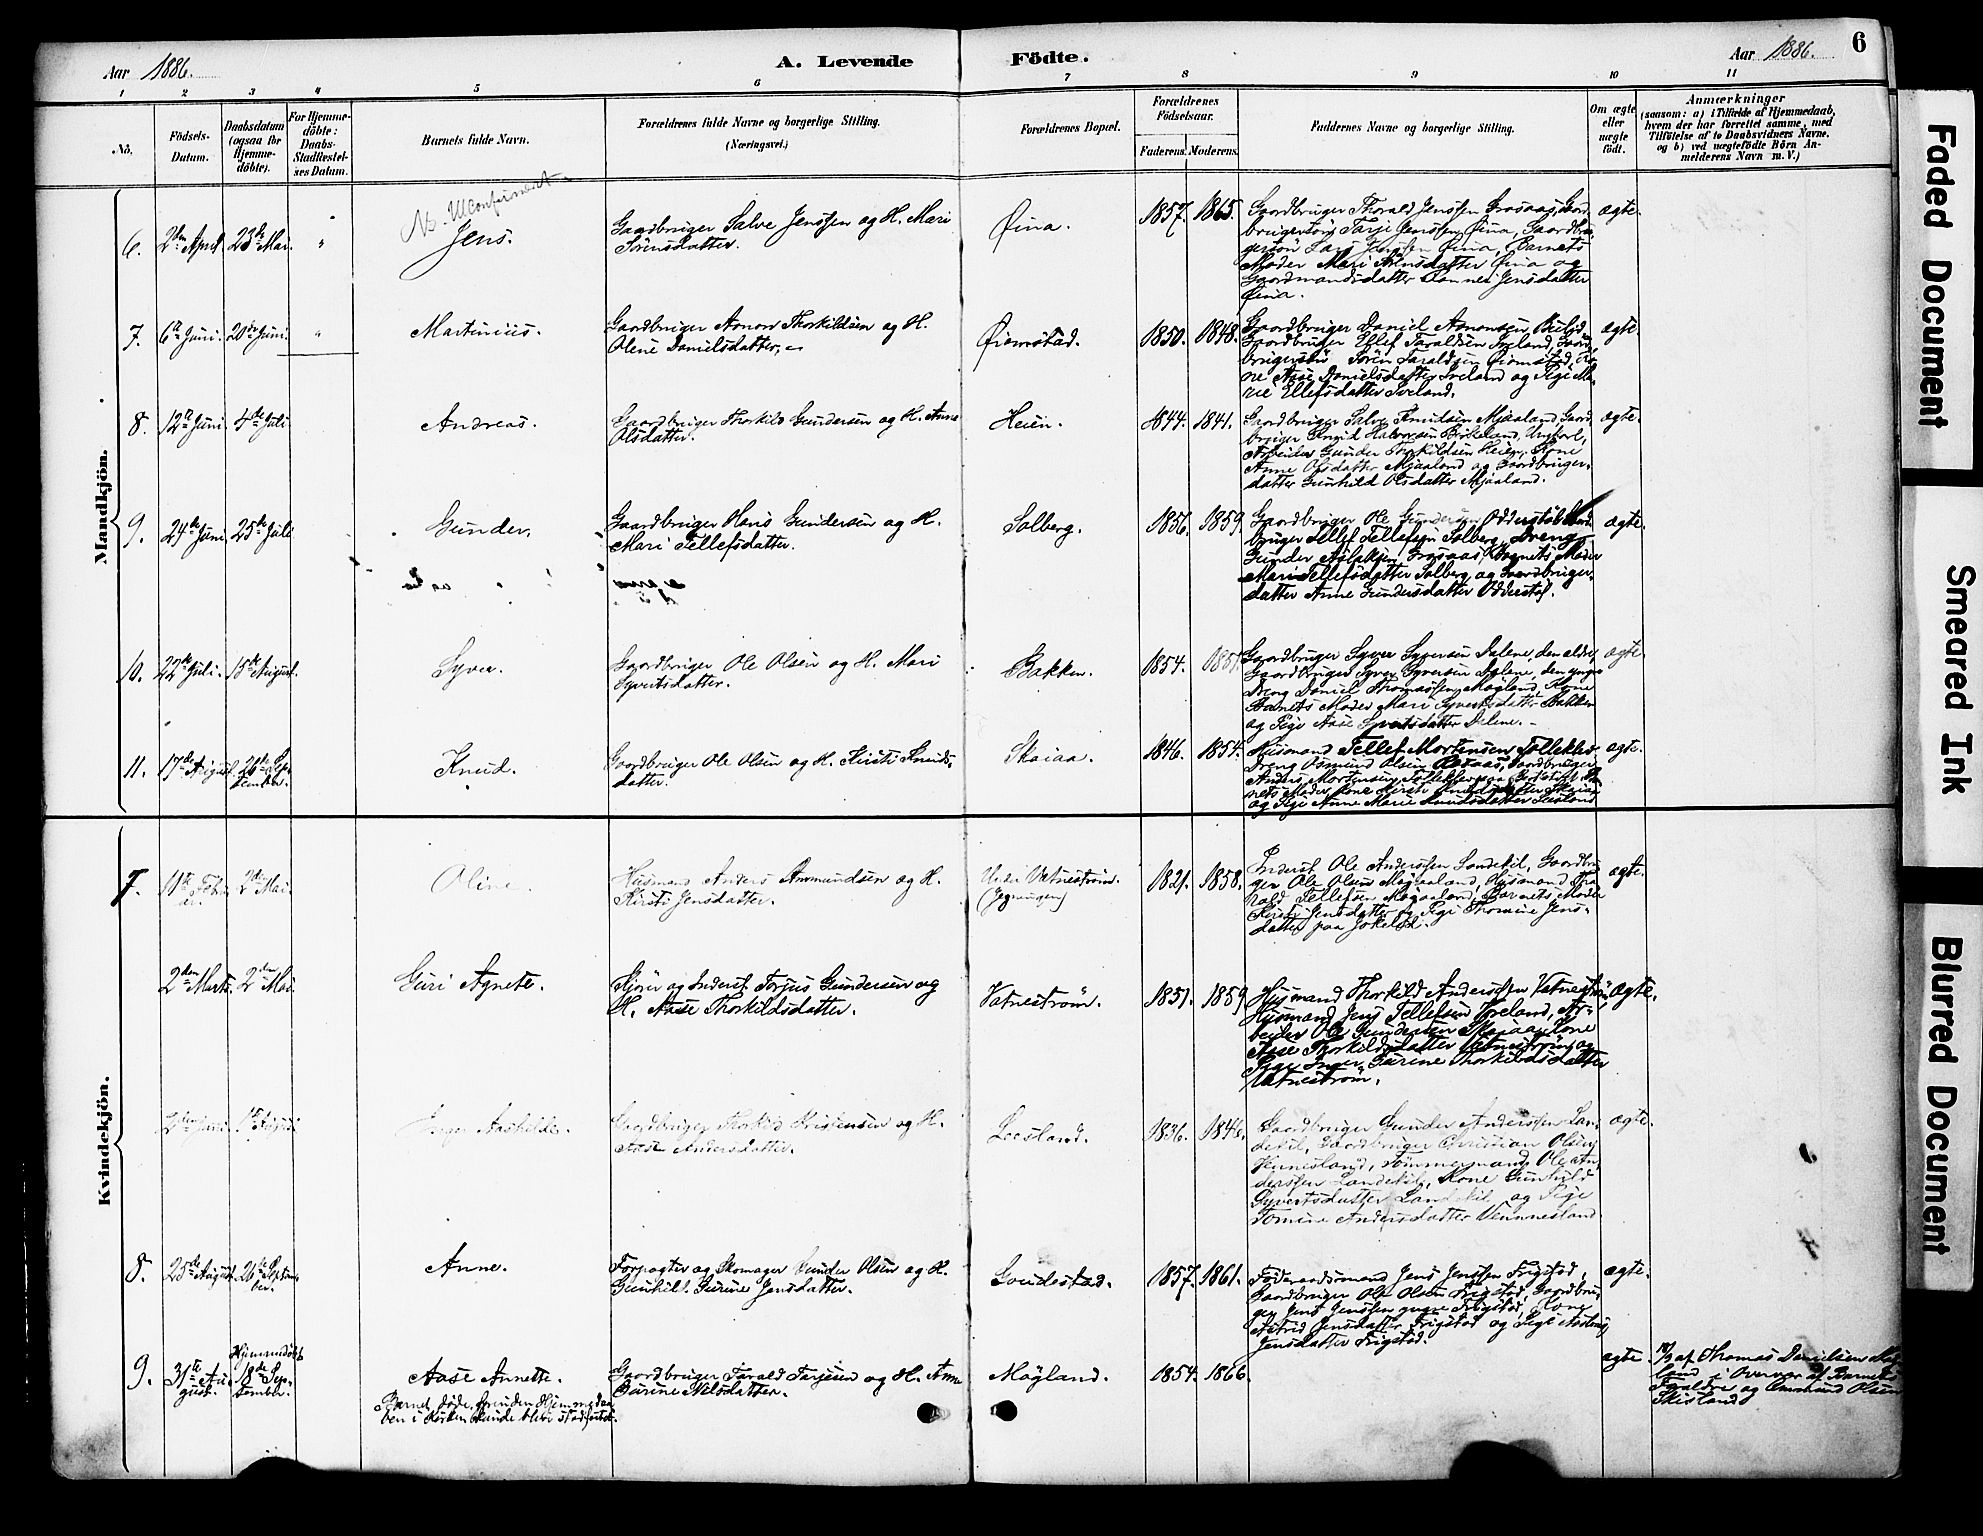 Aar 1886.
A. Levende Födte.
Aar 1886. 6
1 2 3 4 5 6 7 8 9 10 11
No.
Födsels-Datum.
Daabsdatum (ogsaa for Hjemme-döbte).
For Hjemme-döbte: Daabs-Stadfæstel-ses Datum.
Barnets fulde Navn.
Forældrenes fulde Navne og borgerlige Stilling.
(Næringsvei.)
Forældrenes Bopæl.
Forældrenes Födselsaar.
Faderens. Moderens.
Faddernes Navne og borgerlige Stilling.
Om ægte eller uægte födt.
Anmærkninger
(saasom: a) i Tilfælde af Hjemmedaab, hvem der har forrettet samme, med Tilföielse af to Daabsvidners Navne, og b) ved uægtefödte Börn An-melderens Navn m. V.)
Mandkjön.
6. 2den April. 23de Mai. " Jens. Gaardbruger Salve Jenssen og H. Mari
Sörensdatter. Øina. 1857. 1865. Gaardbruger Thorald Jenssen Grosaas, Gaard-
brugersön Tarje Jenssen Øina, Gaardbru-
gersön Lars Jenssen Øina, Barnets
Moder Mari Sörensdatter Øina og
Gaardmandsdatter Jensdatter
Øina. ægte.
7. 6te Juni. 20de Juni. " Martinius. Gaardbruger Aanon Thorkildsen og H.
Olene Danielsdatter. Øiomstad. 1850. 1848. Gaardbruger Daniel Aanonsen
Gaardbruger Ellef Taraldsen Ireland, Gaard-
brugersön Sören Taraldsen Øiomstad, Ko-
ne Aase Danielsdatter Ireland og Pige Ma-
rie Ellefsdatter Ireland. ægte.
8. 12te Juni. 4de Juli. Andreas. Gaardbruger Thorkild Gundersen og H. Anne
Olsdatter. Heien. 1844. 1841. Gaardbruger Salve Knudsen Mjaaland, Gaard-
bruger Halvorsen Birkeland, Ungkarl,
Arbeider Gunder Thorkildsen Heien, Kone
Anne Olsdatter Mjaaland og Gaardbruger-
datter Gunhild Olsdatter Mjaaland. ægte.
9. 24de Juni. 25de Juli. Gunder. Gaardbruger Hans Gundersen og H.
Mari Tellefsdatter. Solberg. 1856. 1859. Gaardbruger Ole Gundersen Odderstöl, Gaard-
bruger Tellef Tellefsen Solberg, Dreng
Gunder Aslaksen Grosaas, Barnets Moder
Mari Tellefsdatter Solberg og Gaardbruger-
datter Anne Gundersdatter Odderstöl. ægte.
10. 22de Juli. 15de August. Syver. Gaardbruger Ole Olsen og H. Mari
Syvertsdatter. Bakken. 1854. Gaardbruger Syver Syversen Dalene, den eldre,
Gaardbruger Syver Syversen Dalene, den yngre
Dreng Daniel Thomassen Møgland, Kone
Barnets Moder Mari Syvertsdatter Bakken
og Pige Aase Syvertsdatter Dalene. ægte.
11. 17de August. 26de Sep-
tember. Knud. Gaardbruger Ole Olsen og H. Kirsti Knuds-
datter. Skaiaa. 1846. 1854. Husmand Tellef Mortensen
Dreng Osmund Olsen Gaardbruger
Anders Mortensen
Moder, Kone Kirsti Knudsdatter Skaiaa
og Pige Anne Marie Knudsdatter ægte.
Kvindekjön.
7. 11te Febru-
ar. 2den Mai. Oline. Husmand Anders Aanundsen og H.
Kirsti Jensdatter. Under Vatneström. 1821. 1858. Inderst Ole Anderssen Landekil, Gaardbru-
ger Ole Olsen Møgaaland, Husmand Tha-
rald Tellefsen Møgaaland, Barnets Moder
Kirsti Jensdatter og Pige Thomine Jens-
datter paa ægte.
2den Marts. 2den Mai. Guri Agnete. og Inderst Torjus Gundersen og
H. Aase Thorkildsdatter. Vatneström. 1851. 1859. Husmand Thorkild Anderssen Vatneström
Husmand Jens Tellefsen Ireland, Ar-
beider Ole Gundersen Skaiaa, Kone
Aase Thorkildsdatter Vatneström og
Pige Inger Gurine Thorkildsdatter
Vatneström. ægte.
2den Juni 1ste August Inger Aashilde. Gaardbruger Thorkild Kristensen og H.
Aase Andersdatter. Løesland. 1836. 1846. Gaardbruger Gunder Anderssen Lan-
dekil, Gaardbruger Christian Olsen
Vennesland, Tömmermand Ole An-
derssen Landekil, Kone Gunhild
Syvertsdatter Landekil og Pige
Tomine Andersdatter Vennesland. ægte.
8. 25de August. 26de Septem-
ber. Anne. Forpagter og Skomager Gunder Olsen og H.
Gunhild Gurine Jensdatter. 1857. 1861. Föderaadsmand Jens Jenssen Frigstad,
Gaardbruger Ole Olsen Frigstad, Gaardbru-
ger Jens Jenssen yngre Frigstad, Kone
Astrid Jensdatter Frigstad og Pige Aasborg
Jensdatter Frigstad. ægte.
9. 31te Au-
gust. Hjemmedöbt
18de Sep-
tember. Aase Annette. Gaardbruger Tarald Tarjesen og H. Anne
Gurine Nilsdatter. Møgland. 1854. 1866. ægte 18/9 af Thomas Danielsen
i Overvær af Barnets
Forældre og Aanund Olsen
Skisland
Barnet döde, forinden Hjemmedaa-
ben i Kirken kunde blive stadfæstet.
Faded Document
Smeared Ink
Blurred Document